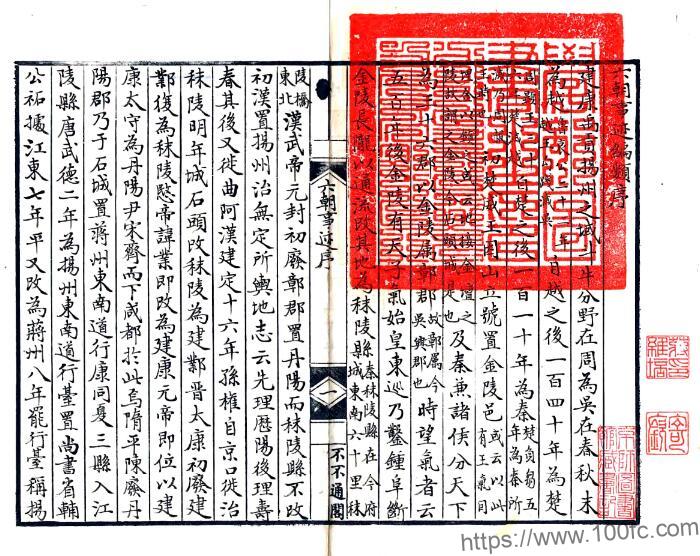 六朝事迹編類序
建康禹貢揚州之域斗牛分野在周為吳在春秋末
為越
自越之後一百四十年為楚
楚之後一百一十年為秦
初楚威王因山立號置金陵邑或云以此有王氣
及秦兼諸侯分天下
為三十六郡以金陵屬鄣郡故鄣屬今吳興郡也時望氣者云
五百年後金陵有天子氣始皇東巡乃鑿鍾阜斷
金陵長隴以通流改其地為秣陵縣秦秣陵縣在今府城東南六十里秣
陵橋東北漢武帝元封初廢鄣郡置丹陽而秣陵縣不改
初漢置揚州治無定所輿地志云先理歷陽後理壽
春其後又徙曲阿漢建定十六年孫權自京口徙治
秣陵明年城石頭改秣陵為建鄴晉太康初廢建
鄴復為秣陵愍帝諱業即改為建康元帝即位以建
康太守為丹陽尹宋齊而下咸都於此焉隋平陳廢丹
陽郡乃于石城置蔣州東南道行康同夏三縣入江
陵縣唐武德二年為揚州東南道行臺置尚書省輔
公祏據江東七年平又改為蔣州八年罷行臺稱揚
六朝事迹序
一
不不通閣
https://www.100fc.com